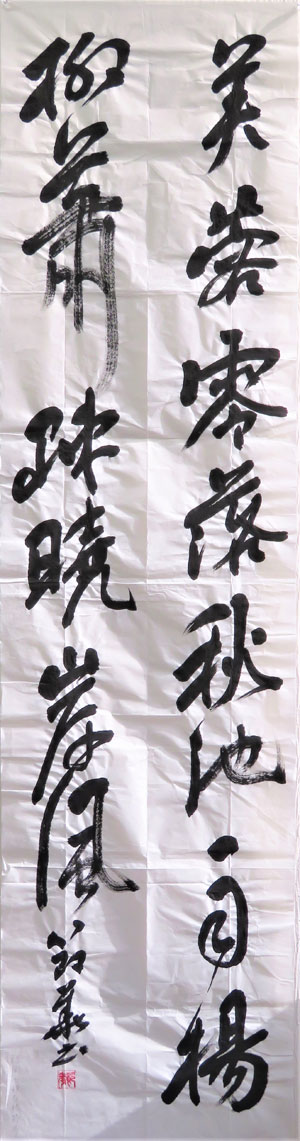 芙蓉零落秋池雨楊
柳蕭疎曉岸風